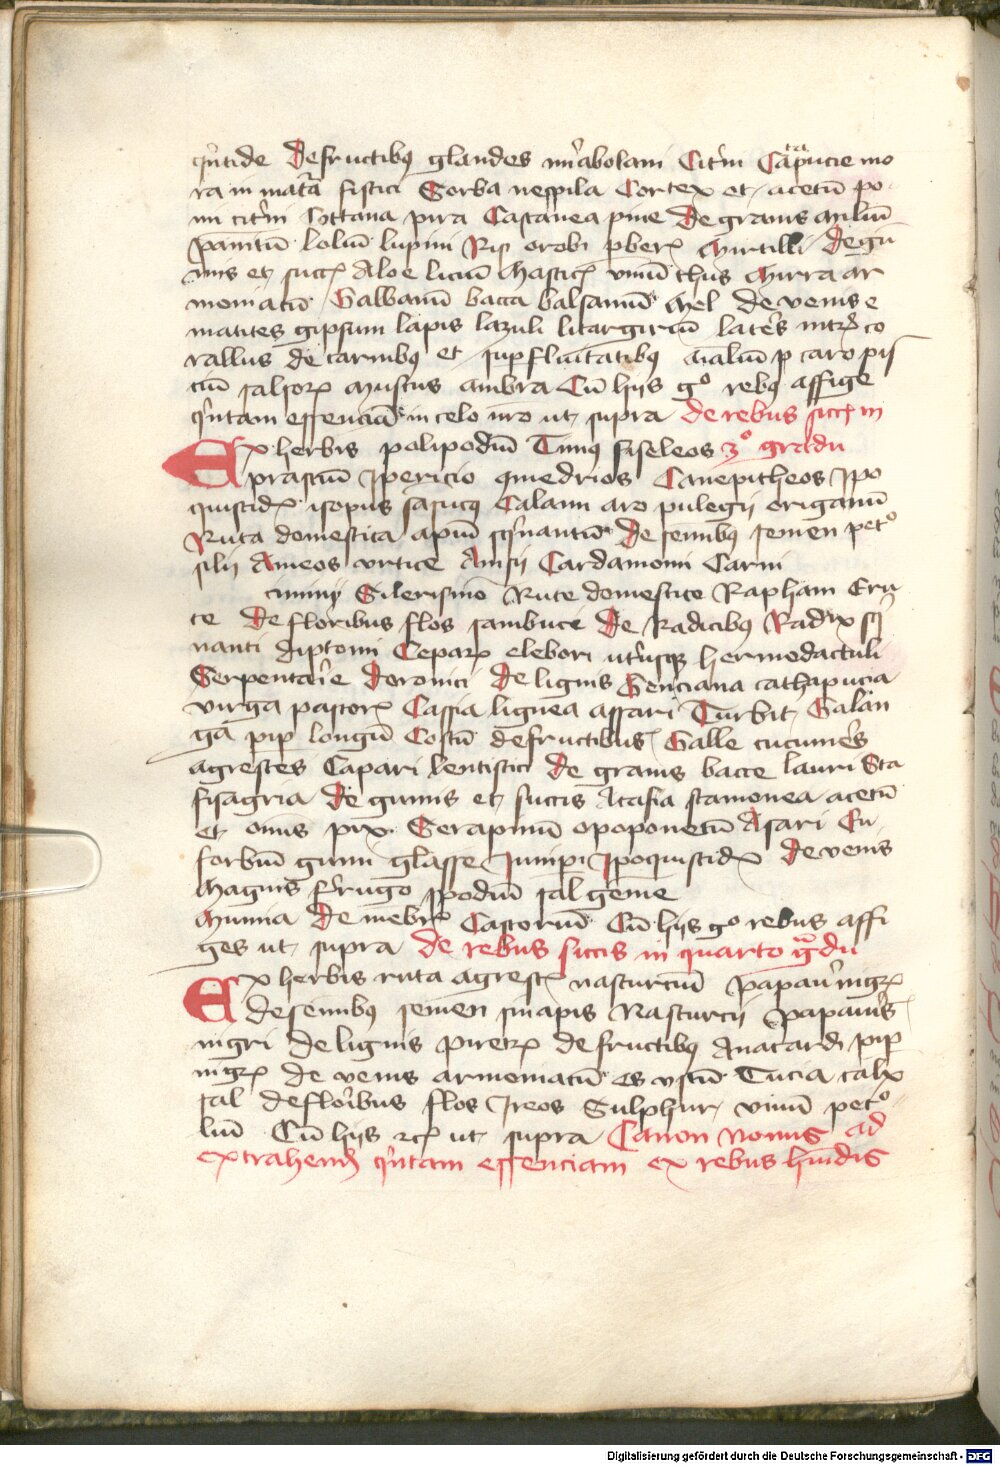 qn̄tide Defructibus glandes mirabolani Citri Capucie mo
ra in matura fistici Sorba nespila Cortex et acetū po-
mi citri Cottana pira Castanea pine De granis miliū
panicū loliū lupini Risi orobi Mirtilli De gū
mis et Aloe liciū Mastic vinū thus Mirra ar
moniacū Galbanū bacca balsamū Mel de venis e
matites gipsum lapis lazuli litargiriū co
rallus de carnibus et supfluitatibus aīaliū caro pis
ciū salsor Muscus ambra Cū hijs gᵒ rebus affige
qn̄tam essenciā in celo nr̄o ut supra de rebus sicc in
Ex herbis polipodiū Timus siseleos 3ᵒ gradu
prassiū Ipericio qmedrios Camepitheos Ipo
quistid isopus Calami aro pulegij origanū
Ruta domestica apiū De semībus semen petᵒ
silij Ameos vrtice Anisij Cardamomi Carui
Ciminij Rute domestice Raphani Eru
ce De floribus flos sambuci De Radicibus Radix sq
nanti diptomi Ceparum elebori utriusque hermodactuli
Serpentarie doronici De lignis Genciana cathapucia
virga pastor Cassia lignea assari Turbit Galan
ga pip longū Costū defructibus Galle cucumers
agrestes Capari lentistici De granis bacce lauri Sta
fisagria De gūmis et succis Acasia scamonea acetū
et pix Serapinū opoponetū Asari Eu
forbiū gūmi glasse Junipi Ipoquistid De venis
Magnis ferrugo spodiū sal gēme
Mumia De mebris Castoriū Cū hijs gᵒ rebus affi
ges ut supra de rebus siccis in quarto gradu
Ex herbis ruta agrest nasturciū papauer nigr
de semībus semen sinapis Nasturcij papauers
nigri de lignis piretr defructibus Anacardi pip
nigr de venis armoniacū es vstū Tucia calx
sal defloribus flos Ireos Sulphur vinū petᵒ
liū Cū hijs ut supra Canon nonus ad
extrahend qn̄tam essenciam ex rebus hūidis
Digitalisierung gefördert durch die Deutsche Forschungsgemeinschaft - DFG